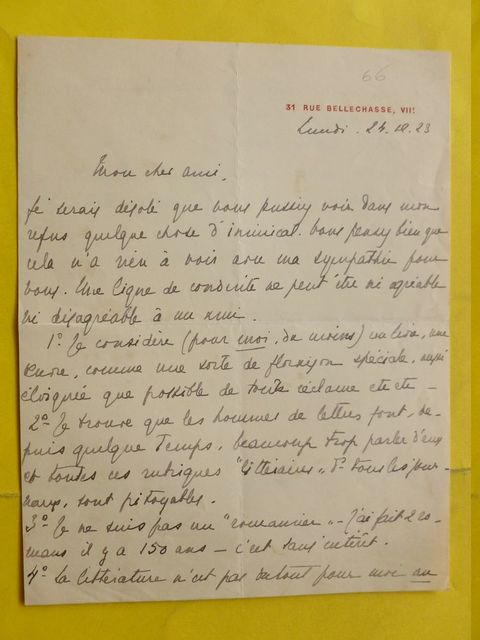 66
31 RUE BELLECHASSE, VIIᵉ
Lundi. 24. 23
Mon cher ami,
Je serais désolé que vous puissiez voir dans mon
refus quelque chose d'inamical. Vous pensez bien que
cela n'a rien à voir avec ma sympathie pour
vous. Une ligne de conduite ne peut être ni agréable
ni désagréable à un ami.
1º. Je considère (pour moi, du moins) un livre, une
œuvre, comme une sorte de floraison spéciale, aussi
éloignée que possible de toute réclame etc etc —
2º Je trouve que les hommes de lettres font, de-
puis quelque temps, beaucoup trop parler d'eux
et toutes ces rubriques "littéraires", ds tous les jour-
naux, sont pitoyables.
3º Je ne suis pas un "romancier" — J'ai fait 2 ro-
mans il y a 150 ans — c'est sans intérêt.
4º La littérature n'est pas du tout pour moi un